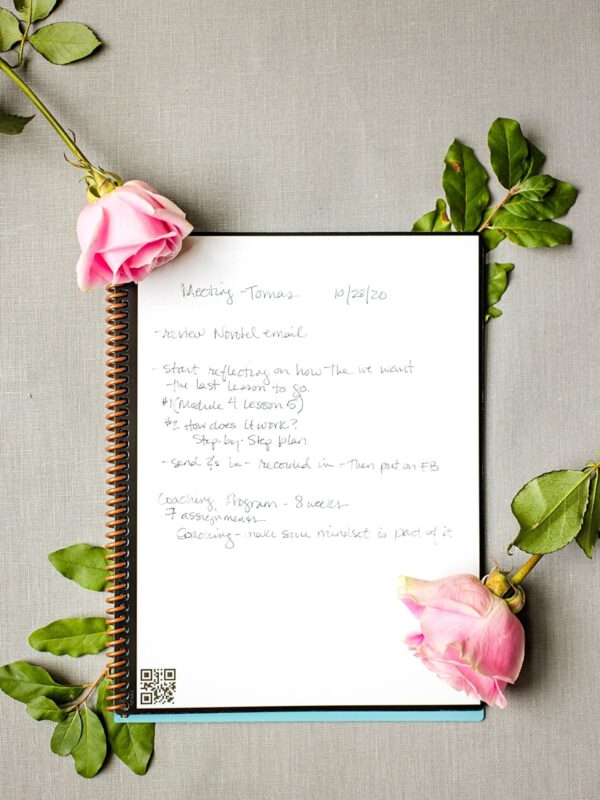 Meeting - Tomas 10/28/20
- review Novotel email
- start reflecting on how the we want
the last lesson to go.
#1 (Module 4 Lesson 5)
#2 How does it work?
Step-by-Step plan
- send in - recorded in - then put on FB
Coaching Program - 8 weeks
7 assignments
Coaching - make sure mindset is part of it